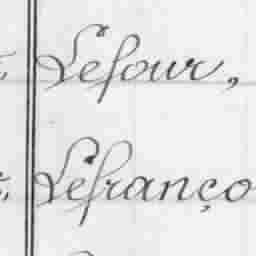 Lefour,
Lefranço